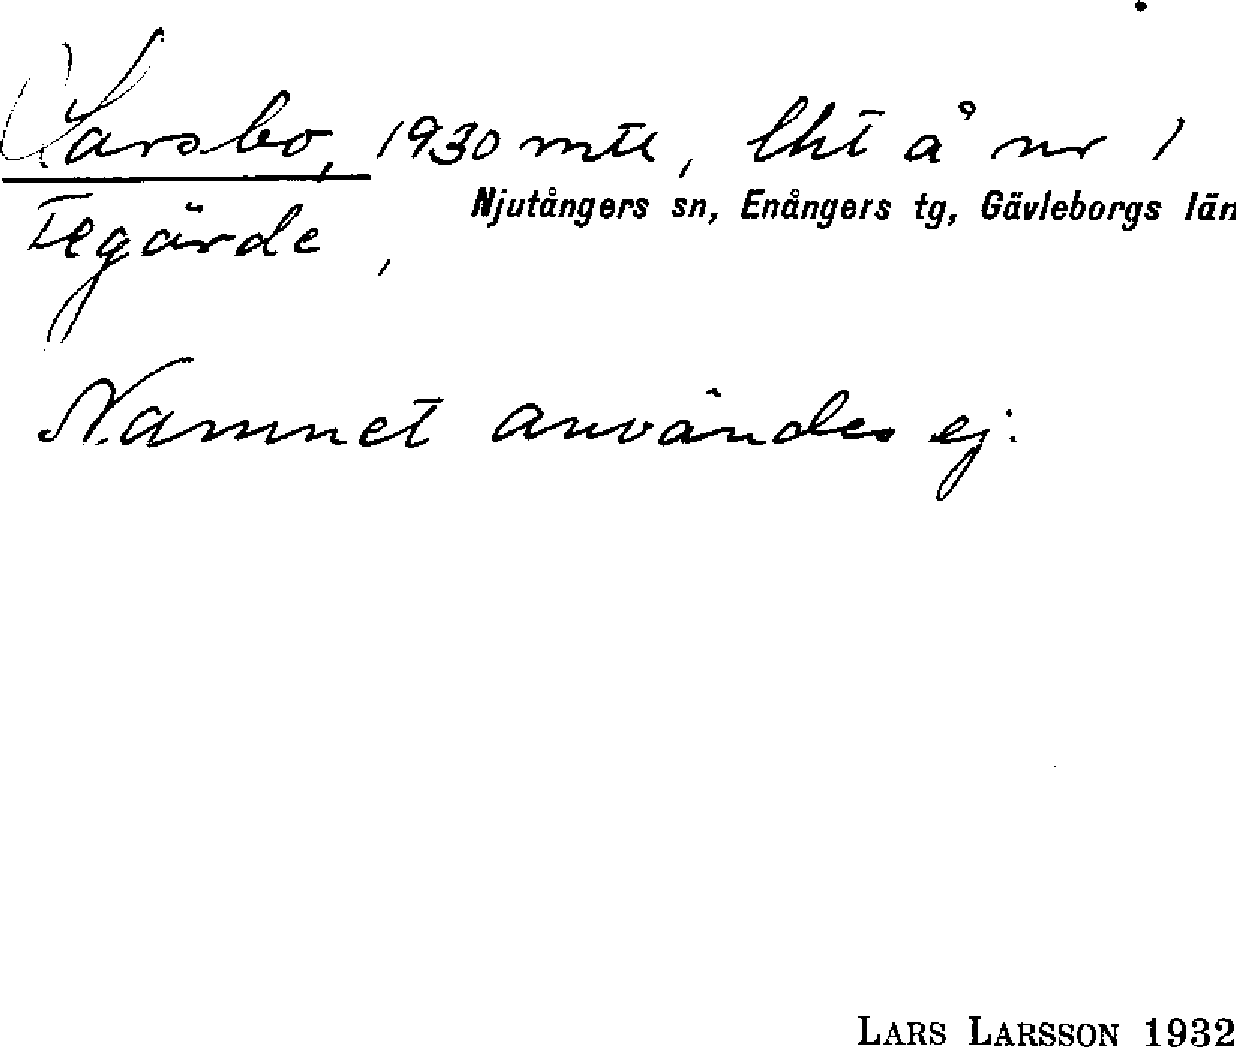 Larsbo, 1930 mtl, lht å nr 1
Tegärde, Njutångers sn, Enångers tg, Gävleborgs län
Namnet användes ej.
LARS LARSSON 1932